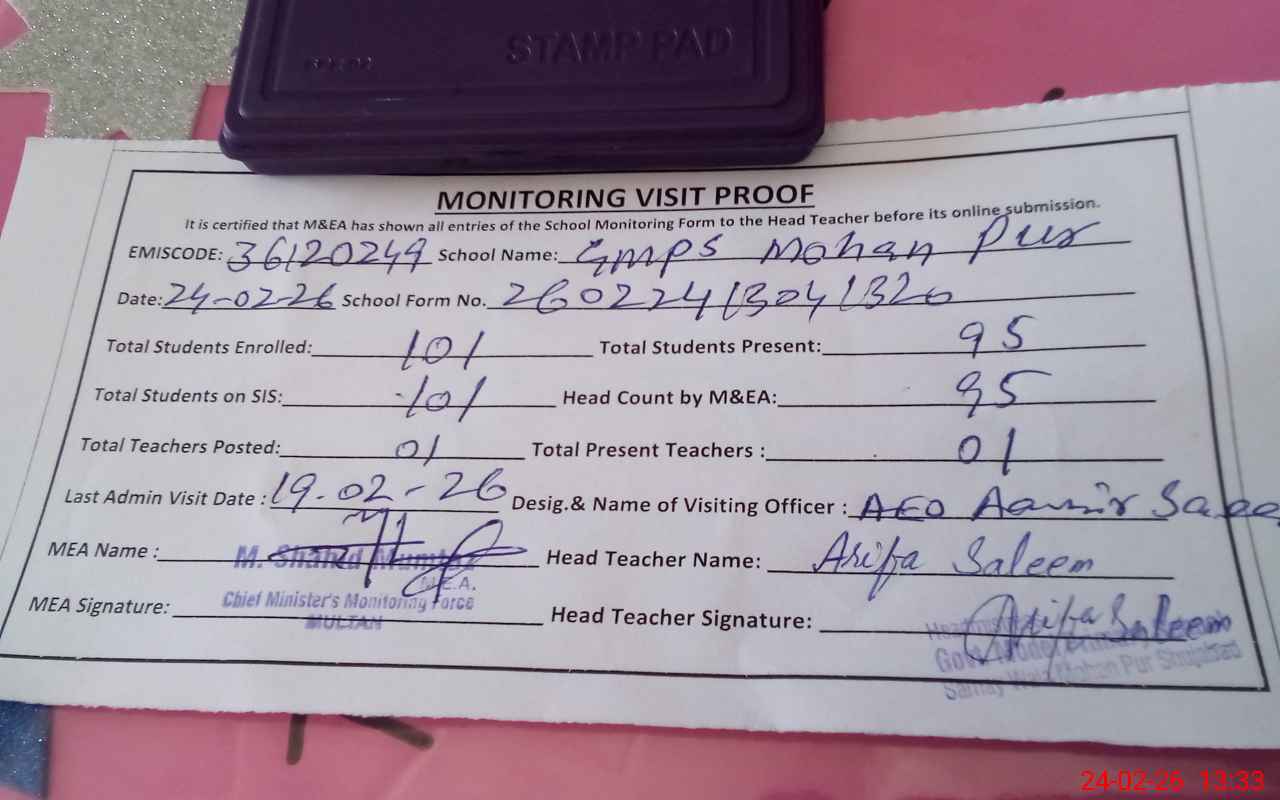 STAMP PAD
MONITORING VISIT PROOF
It is certified that M&EA has shown all entries of the School Monitoring Form to the Head Teacher before its online submission.
EMISCODE: 36120249 School Name: GMPS Mohan Pur
Date: 24-02-26 School Form No. 26022413041320
Total Students Enrolled: 101 Total Students Present: 95
Total Students on SIS: 101 Head Count by M&EA: 95
Total Teachers Posted: 01 Total Present Teachers : 01
Last Admin Visit Date : 19-02-26 Desig.& Name of Visiting Officer : AEO Aamir
MEA Name : M. Shahid Mumtaz Head Teacher Name: Arifa Saleem
M.E.A.
Chief Minister's Monitoring Force
MULTAN
MEA Signature: Head Teacher Signature: Arifa Saleem
Govt. Model Primary
Mohan Pur Shujabad
24-02-26 13:33